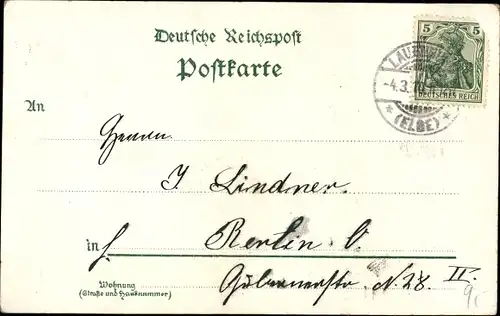 Deutsche Reichspost
Postkarte
5 5
DEUTSCHES REICH
-4.3.
(ELBE)
An
Herrn
J. Lindner
in Berlin O.
N. 28. II.
Wohnung
(Straße und Hausnummer)